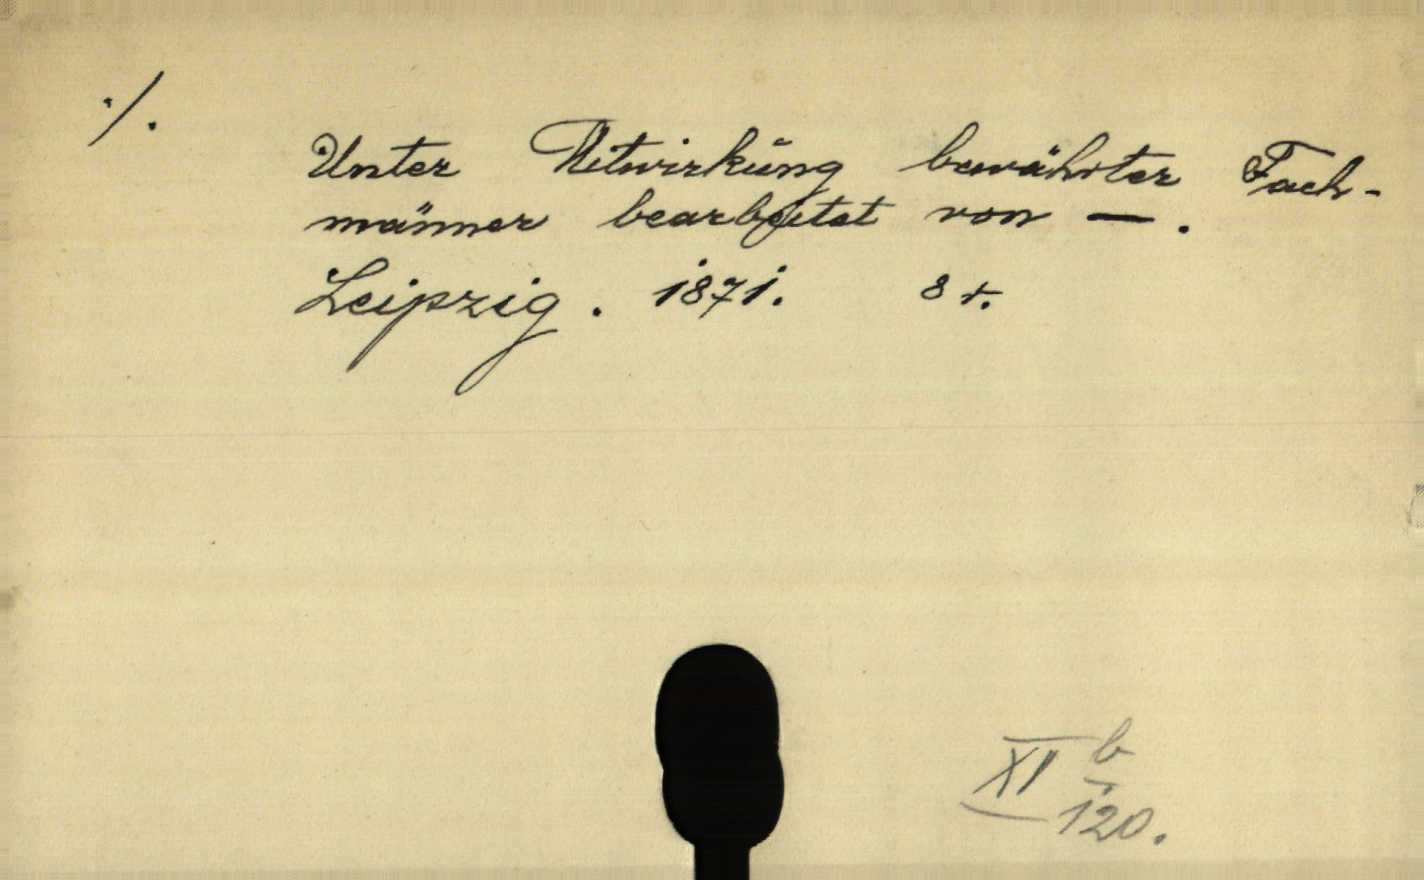 ./.
Unter Mitwirkung bewährter Fach-
männer bearbeitet von —.
Leipzig. 1871. 8 r.
XI b
120.